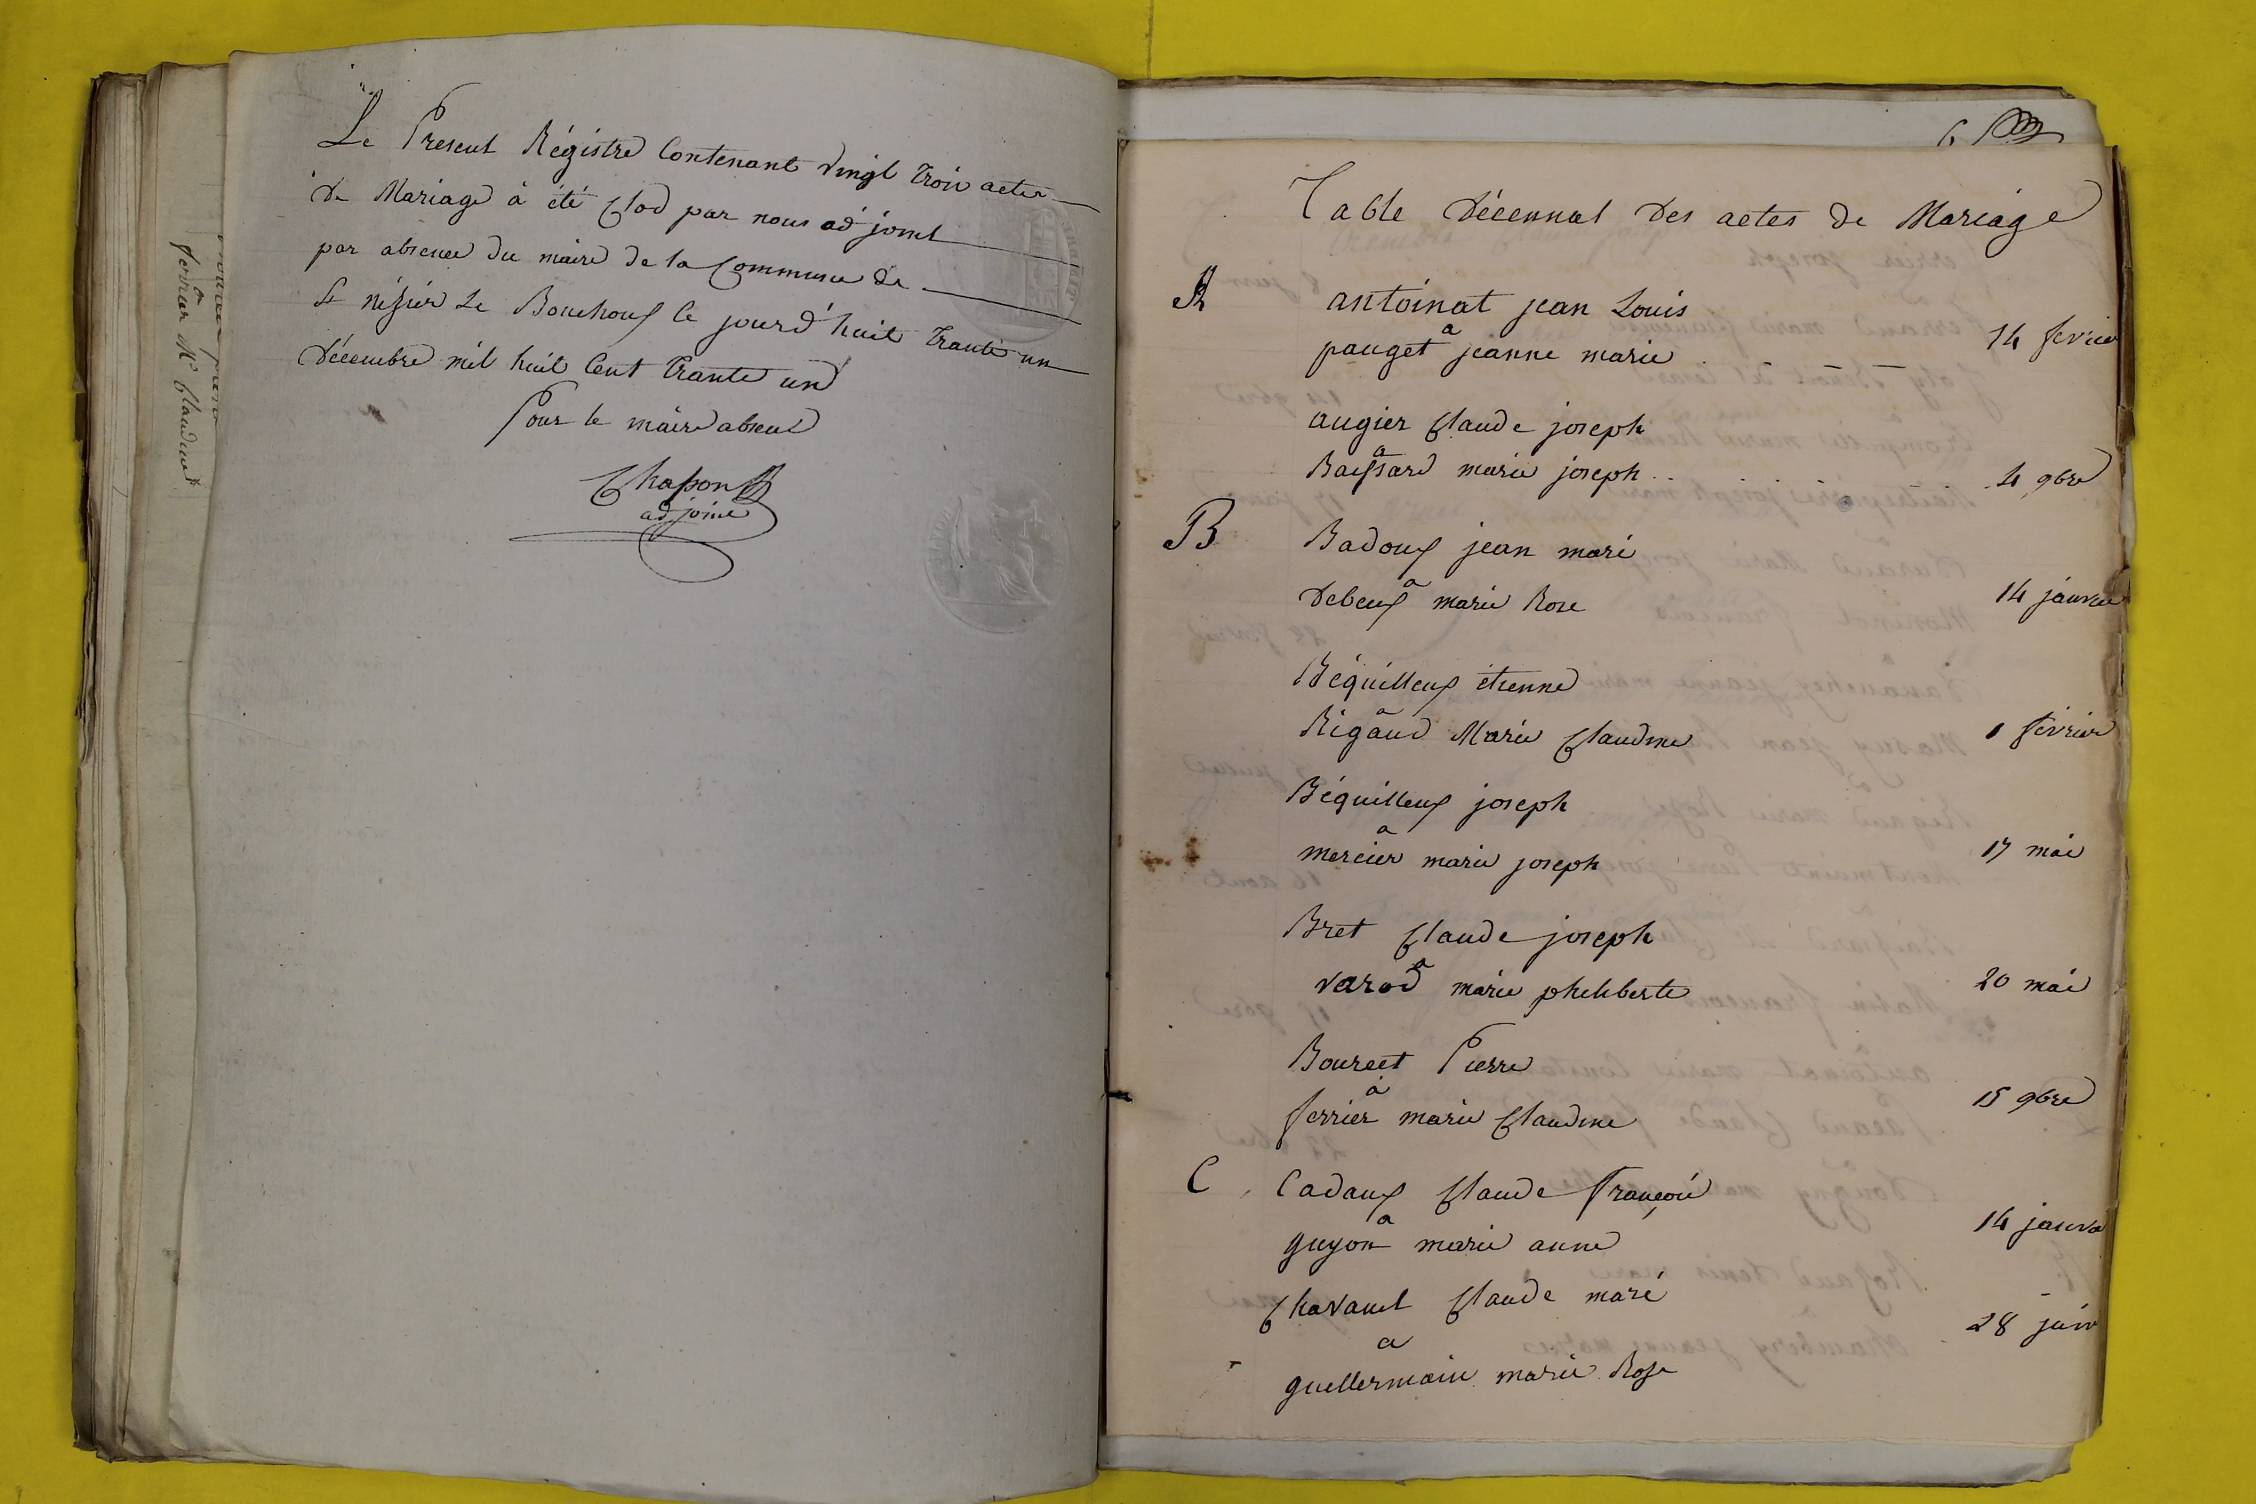 Le Present Régistre Contenant vingt trois actes
de Mariage à été Clod par nous adjoint
par absence du maire de la Commune de
St néziér Le Bouchoux le jourd'huit trante un
Décembre mil huit Cent trante un
Pour le maire absent
Chapon
adjoint
ferrier Mie Claudine
Table décennal des actes de Mariage
A antoinat jean Louis
a
pauget jeanne marie 14 fevrier
augier Claude joseph
a
Baissard marie joseph 4 9bre
B Badoux jean marie
a
Debeuf marie Rose 14 janvier
Béquilleux étienne
a
Rigaud Marie Claudine 1 février
Béquilleux joseph
a
mercier marie joseph 17 mai
Bret Claude joseph
a
varod marie pheliberte 20 mai
Bourcet Pierre
à
ferrier marie Claudine 15 9bre
C Cadaux Claude françois
a
guyon marie anne 14 janv
Chavanet Claude marie
a 28 juin
guellermain marie Rose